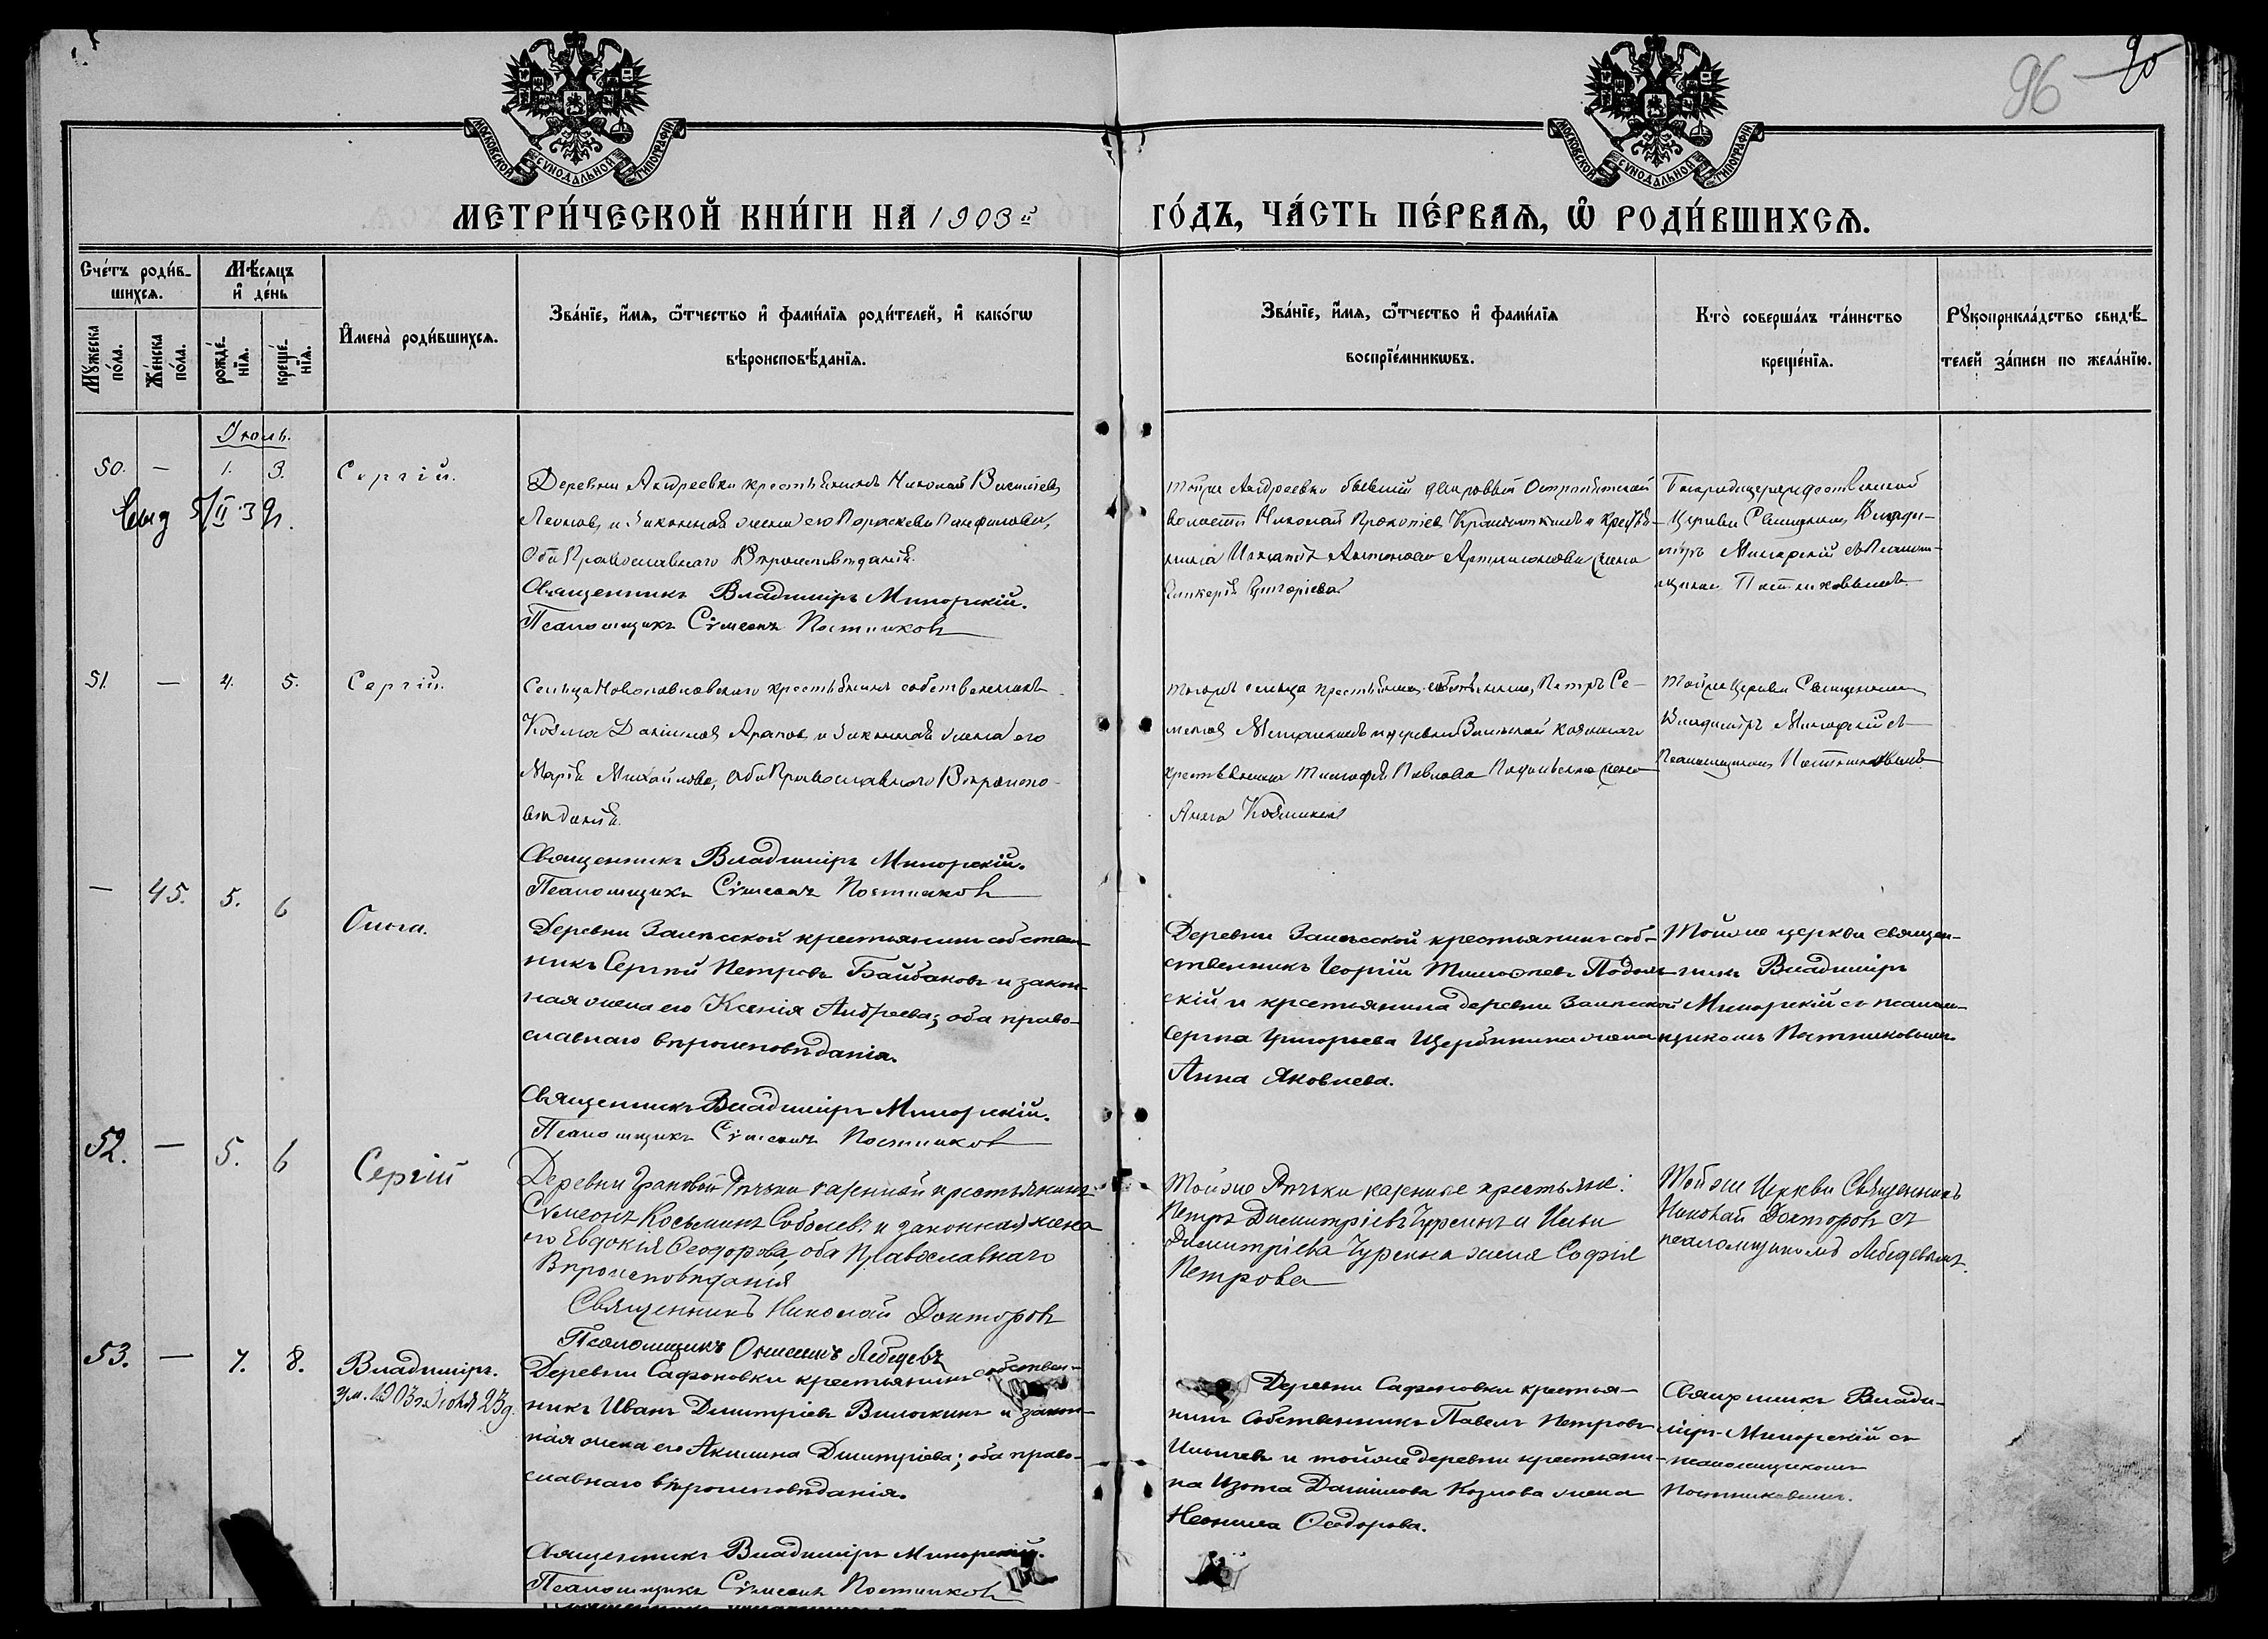 96 90
МОСКОВСКОЙ СУНОДАЛЬНОЙ ТИПОГРАФІИ
МОСКОВСКОЙ СУНОДАЛЬНОЙ ТИПОГРАФІИ
МЕТРИ́ЧЕСКОЙ КНИ́ГИ НА 1903й ГО́ДЪ, ЧА́СТЬ ПЕ́РВАѦ, Ѡ҆ РОДИ́ВШИХСѦ.
Сче́тъ роди́в-
шихсѧ.
Мꙋ́жеска по́ла.
Же́нска по́ла.
Мѣ́сѧцъ
и҆ де́нь
рожде́-нїѧ.
креще́-нїѧ.
И҆мена̀ роди́вшихсѧ.
Зва́нїе, и҆́мѧ, ѻ҆́тчество и҆ фами́лїѧ роди́телей, и҆ како́гѡ
вѣроисповѣ́данїѧ.
Зва́нїе, и҆́мѧ, ѻ҆́тчество и҆ фами́лїѧ
воспрїе́мникѡвъ.
Кто̀ соверша́лъ та́инство
креще́нїѧ.
Рꙋкоприкла́дство свидѣ́-
телей за́писи по жела́нїю.
Іюль.
50. — 1. 3. Сергій.
Деревни Андреевки крестьянинъ Николай Васильевъ
Леоновъ и законная жена его Параскева Панфилова,
оба Православнаго Вѣроисповѣданія.
Священникъ Владиміръ Минорскій.
Псаломщикъ Сѵмеонъ Постниковъ
тойже Андреевки бывшій дворовый
волости Николай Прокопіевъ и крестья-
нина Антонова жена
Григоріева
Богородицерождественской
Церкви Священникъ Влади-
міръ Минорскій съ Псалом-
щикомъ Постниковымъ.
51. — 4. 5. Сергій.
Сельца Новопавловскаго крестьянинъ собственникъ
Козма Даніиловъ Араповъ и законная жена его
Марія Михайлова, оба Православнаго Вѣроиспо-
вѣданія.
Священникъ Владиміръ Минорскій.
Псаломщикъ Сѵмеонъ Постниковъ
тогожъ сельца крестьянинъ собственникъ, Петръ Се-
меновъ и деревни Залѣсской
крестьянина Тимофея Павлова жена
Анна Козминая
тойже Церкви Священникъ
Владиміръ Минорскій съ
Псаломщикомъ Постниковымъ
— 45. 5. 6 Ольга.
Деревни Залѣсской крестьянинъ собствен-
никъ Сергѣй Петровъ Байбаковъ и закон-
ная жена его Ксенія Андреева; оба право-
славнаго вѣроисповѣданія.
Священникъ Владиміръ Минорскій.
Псаломщикъ Сѵмеонъ Постниковъ
Деревни Залѣсской крестьянинъ соб-
ственникъ Георгій Тимоѳеевъ Подоль-
скій и крестьянина деревни Залѣсской
Сергѣя Григорьева Щербинина жена
Анна Яковлева.
Тойже церкви священ-
никъ Владиміръ
Минорскій съ псалом-
щикомъ Постниковымъ
52. — 5. 6 Сергій
Деревни Рѣчки казенный крестьянинъ
Сѵмеонъ Косьминъ Соболевъ и законная жена
его Евдокія Ѳеодорова, оба Православнаго
Вѣроисповѣданія
Священникъ Николай Докторовъ
Псаломщикъ Онисимъ Лебедевъ
Тойже Рѣчки казенные крестьяне:
Петръ Димитріевъ Чуренъ и Ильи
Димитріева Чурена жена Софія
Петрова
Тойже Церкви Священникъ
Николай Докторовъ съ
псаломщикомъ Лебедевымъ.
53. — 7. 8. Владиміръ.
Ум. 1903 г. Іюля 23 д.
Деревни Сафоновки крестьянинъ собствен-
никъ Иванъ Димитріевъ Вилочкинъ и закон-
ная жена его Акилина Димитріева; оба право-
славнаго вѣроисповѣданія.
Священникъ Владиміръ Минорскій.
Псаломщикъ Сѵмеонъ Постниковъ
Деревни Сафоновки крестья-
нинъ собственникъ Павелъ Петровъ
Ильичевъ и тойже деревни крестьяни-
на Изота Даніилова Козлова жена
Неонила Ѳеодорова.
Священникъ Влади-
міръ Минорскій съ
псаломщикомъ
Постниковымъ.